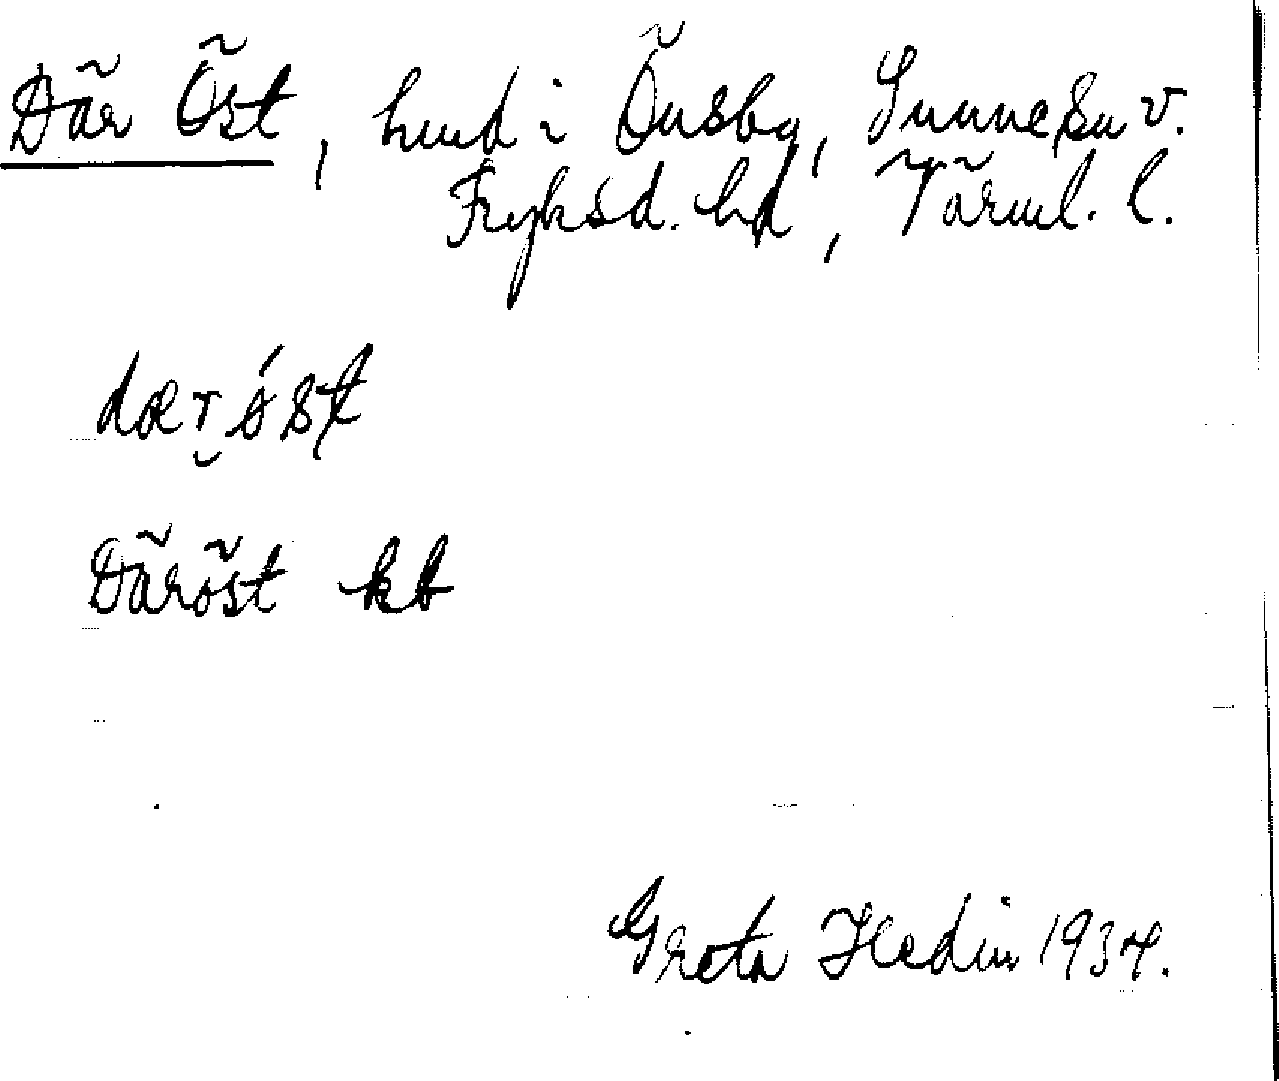 Där Öst, hmd i Önsby, Sunne sn v.
Fryksd. hd, Värml. l.
dær öst
Däröst kb
Greta Hedin 1934.